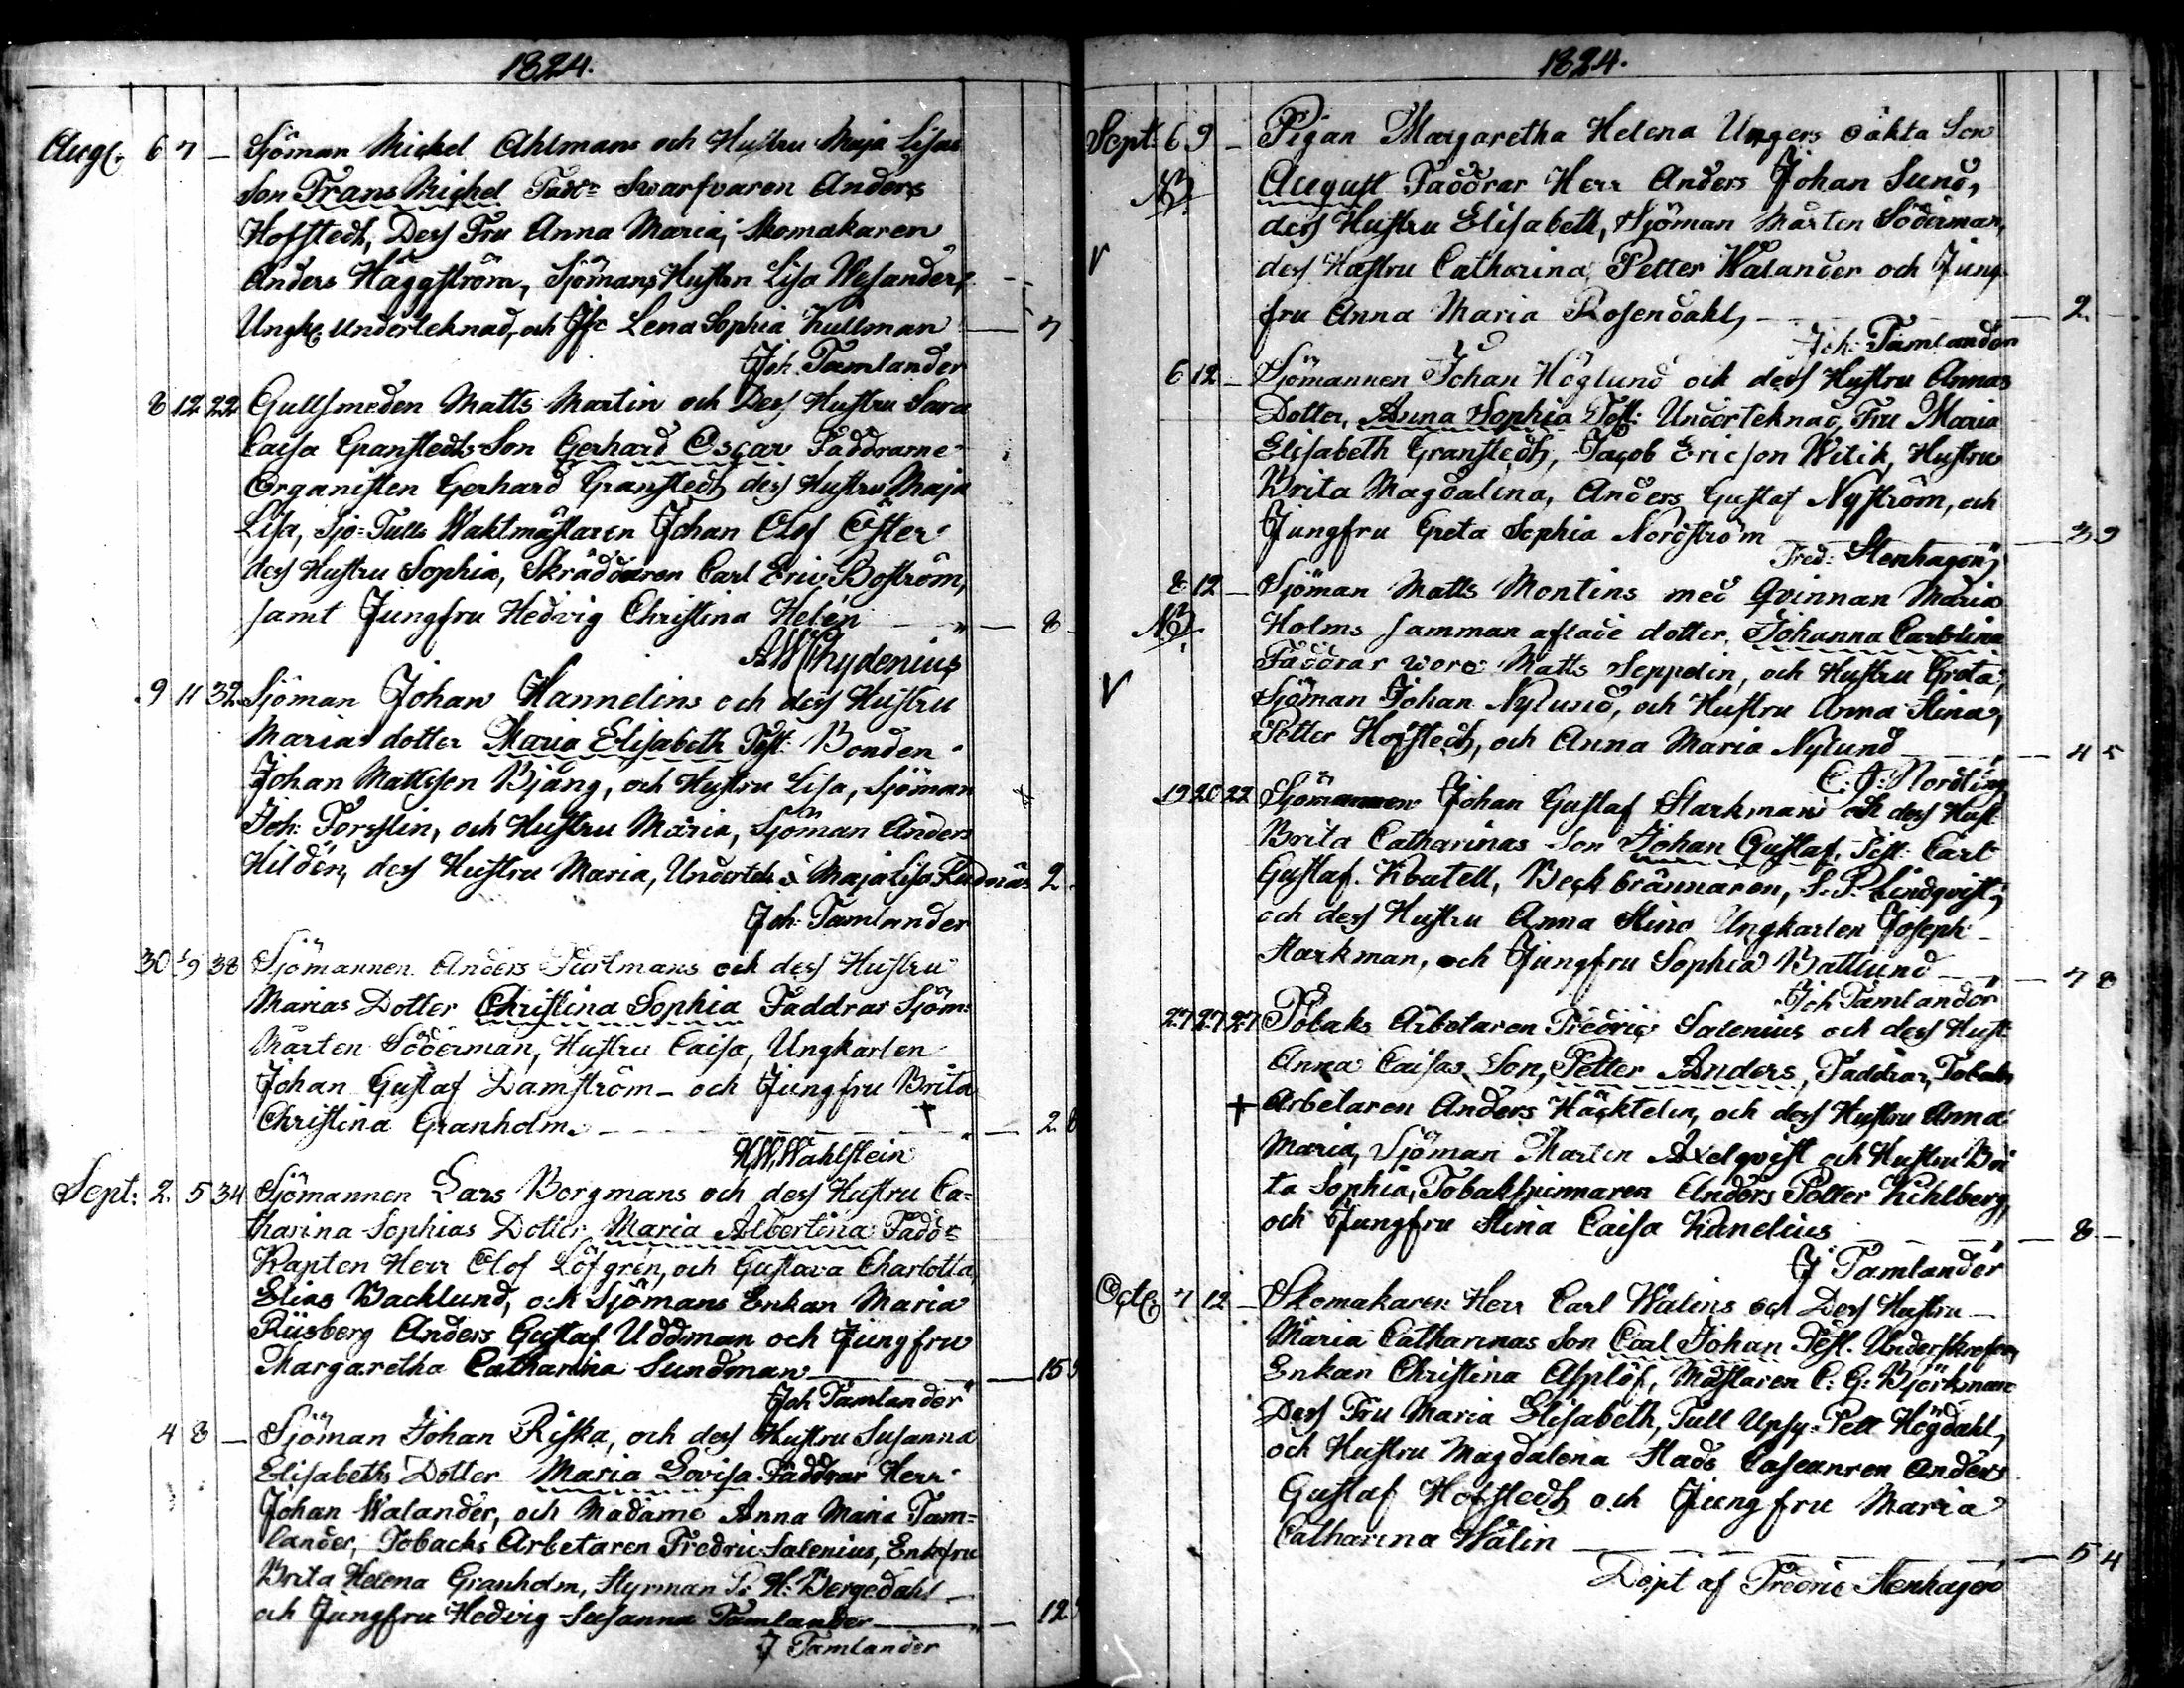 1824.
Augt: 6 7 — Sjöman Michel Ahlmans och Hustru Maja Lisas
Son Frans Michel Fadr: Swarfvaren Anders
Hofstedt, Dess Fru Anna Maria, Skomakaren
Anders Häggström, Sjömans Hustrun Lisa Wesanders
Ungk: underteknad, och Jfr Lena Sophia Kullman — 7
Joh. Tamlander
8 12 22 Gullsmeden Matts Martin och Dess Hustru Sara
Caisa Granstedts Son Gerhard Oscar Faddrarne
Organisten Gerhard Granstedt dess Hustru Maja
Lisa, Sjö-Tulls Waktmästaren Johan Olof Öster
dess Hustru Sophia, Skräddaren Carl Eric Boström,
samt Jungfru Hedvig Christina Helén — 8 -
AWChydenius
9 11 32 Sjöman Johan Hannelins och dess Hustru
Marias dotter Maria Elisabeth Test: Bonden
Johan Mattsson Bjäng, och Hustru Lisa, Sjöman
Joh: Forsslin, och Hustru Maria, Sjöman Anders
Hildén, dess Hustru Maria, & Maja Lisa 2
Joh: Tamlander
30 38 Sjömannen Anders och dess Hustru
Marias Dotter Christina Sophia Faddrar Sjöm:
Mårten Söderman, Hustru Caisa, Ungkarlen
Johan Gustaf Damström - och Jungfru Brita
Christina Granholm. — + — 2 8
HWWahlstein
Sept: 2. 5 34 Sjömannen Lars Borgmans och dess Hustru Ca=
tharina Sophias Dotter Maria Albertina Fadd:
Kapten Herr Olof Löfgren, och Gustava Charlotta,
Elias Backlund, och Sjömans Enkan Maria
Riisberg Anders Gustaf Uddman och Jungfru
Margaretha Catharina Sundman — 15
Joh Tamlander
4 8 — Sjöman Johan Riska, och dess Hustru Susanna
Elisabeths Dotter Maria Lovisa Faddrar Herr
Johan Walander, och Madame Anna Maria Tam=
lander, Tobacks Arbetaren Fredric Salenius, Enkefru
Brita Helena Granholm, Styrman P: H: Bergedahl —
och Jungfru Hedvig Susanna Tamlander — 12
J Tamlander
1824.
Sept: 6 9 — Pigan Margaretha Helena Ungers oäkta Son
NB August Faddrar Herr Anders Johan Sund,
dess Hustru Elisabeth, Sjöman Mårten Söderman,
V dess Hustru Catharina, Petter Walander och Jung
fru Anna Maria Rosendahl, — 2
Joh: Tamlander
6 12 — Sjömannen Johan Höglund och dess Hustru Annas
Dotter, Anna Sophia Test: Underteknad, Fru Maria
Elisabeth Granstedt, Jacob Ericson Witik, Hustru
Brita Magdalena, Anders Gustaf Nyström, och
Jungfru Greta Sophia Nordström — 3 9
Fred: Stenhagen
8 12 — Sjöman Matts Montins med Qvinnan Maria
NB Holms samman aflade dotter, Johanna Carolina
Faddrar woro Matts Seppelin, och Hustru Greta,
V Sjöman Johan Nylund, och Hustru Anna Stina,
Petter Hofstedt, och Anna Maria Nylund — 4 5
C. J: Nordling
19 20 22 Sjömannen Johan Gustaf Starkman och dess Hust
Brita Catharinas Son Johan Gustaf, Test: Carl
Gustaf, Beckbrännaren, S. P. Lindqvist,
och dess Hustru Anna Stina Ungkarlen Joseph
Starkman, och Jungfru Sophia Battlund — 7 8
Joh Tamlander
27 27 27 Tobaks Arbetaren Fredric Salenius och dess Hust:
Anna Caisas Son, Petter Anders, Faddrar, Tobaks
+ Arbetaren Anders Häcktelin, och dess Hustru Anna
Maria, Sjöman Marten Axelqvist och Hustru Bri
ta Sophia, Tobakspinnaren Anders Petter Kihlberg,
och Jungfru Stina Caisa Kanelius — 8 —
J Tamlander
Octb 7 12 — Skomakaren Herr Carl Walins och Dess Hustru —
Maria Catharinas Son Carl Johan Test. Underskrefven,
Enkan Christina Asplöf, Mästaren C: G: Björkman
Dess Fru Maria Elisabeth, Tull Upsy: Pett Högdahl,
och Hustru Magdalena Stads Anders
Gustaf Hofstedt och Jungfru Maria
Catharina Walin — 5 4
Döpt af Fredric Stenhagen